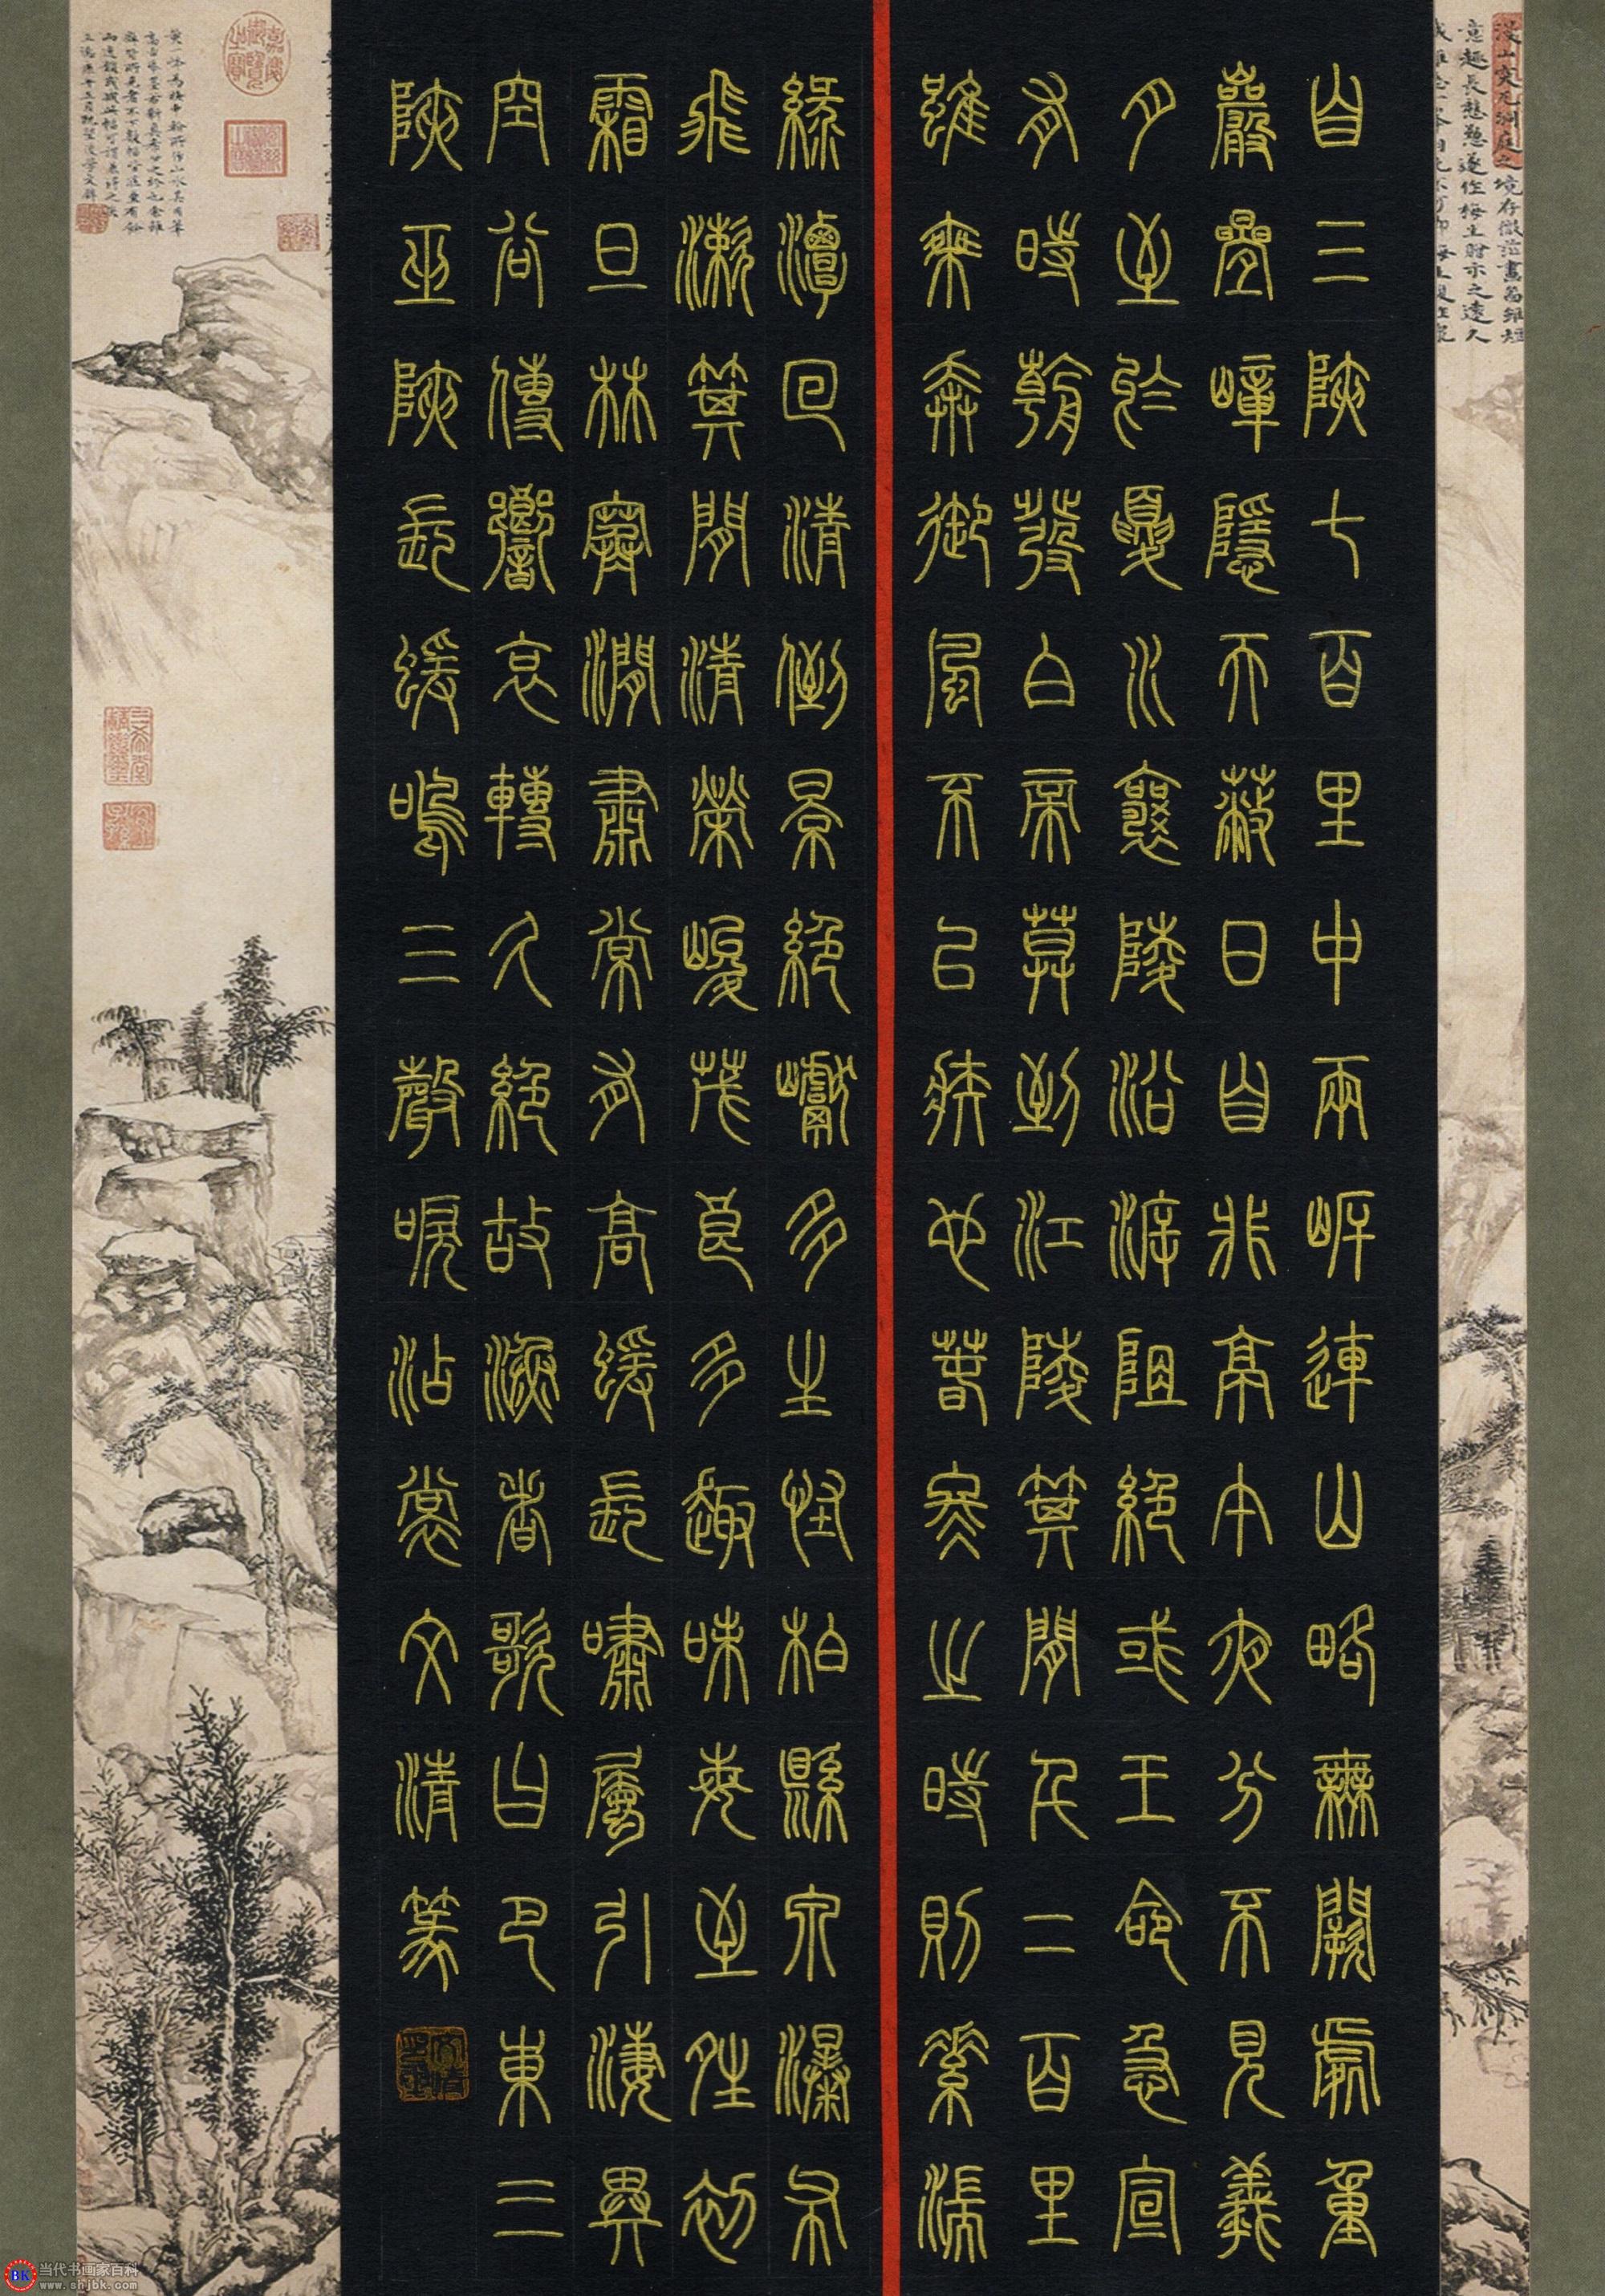 自三陝七百里中兩岸連山略無闕處重
巖疊嶂隱天蔽日自非亭午夜分不見羲
月至於夏水襄陵沿泝阻絕或王命急宣
有時朝發白帝莫到江陵其間凡二百里
雖乘奔御風不以疾也春冬之時則素湍
綠潭回清倒景絕巘多生怪柏縣泉瀑布
飛漱其間清榮峻茂良多趣味每至晴初
霜旦林寒澗肅常有高猨長嘯屬引淒異
空谷傳響哀轉久絕故漁者歌曰巴東三
陝巫陝長猨鳴三聲淚沾裳文清篆
BK
当代书画家百科
www.shjbk.com